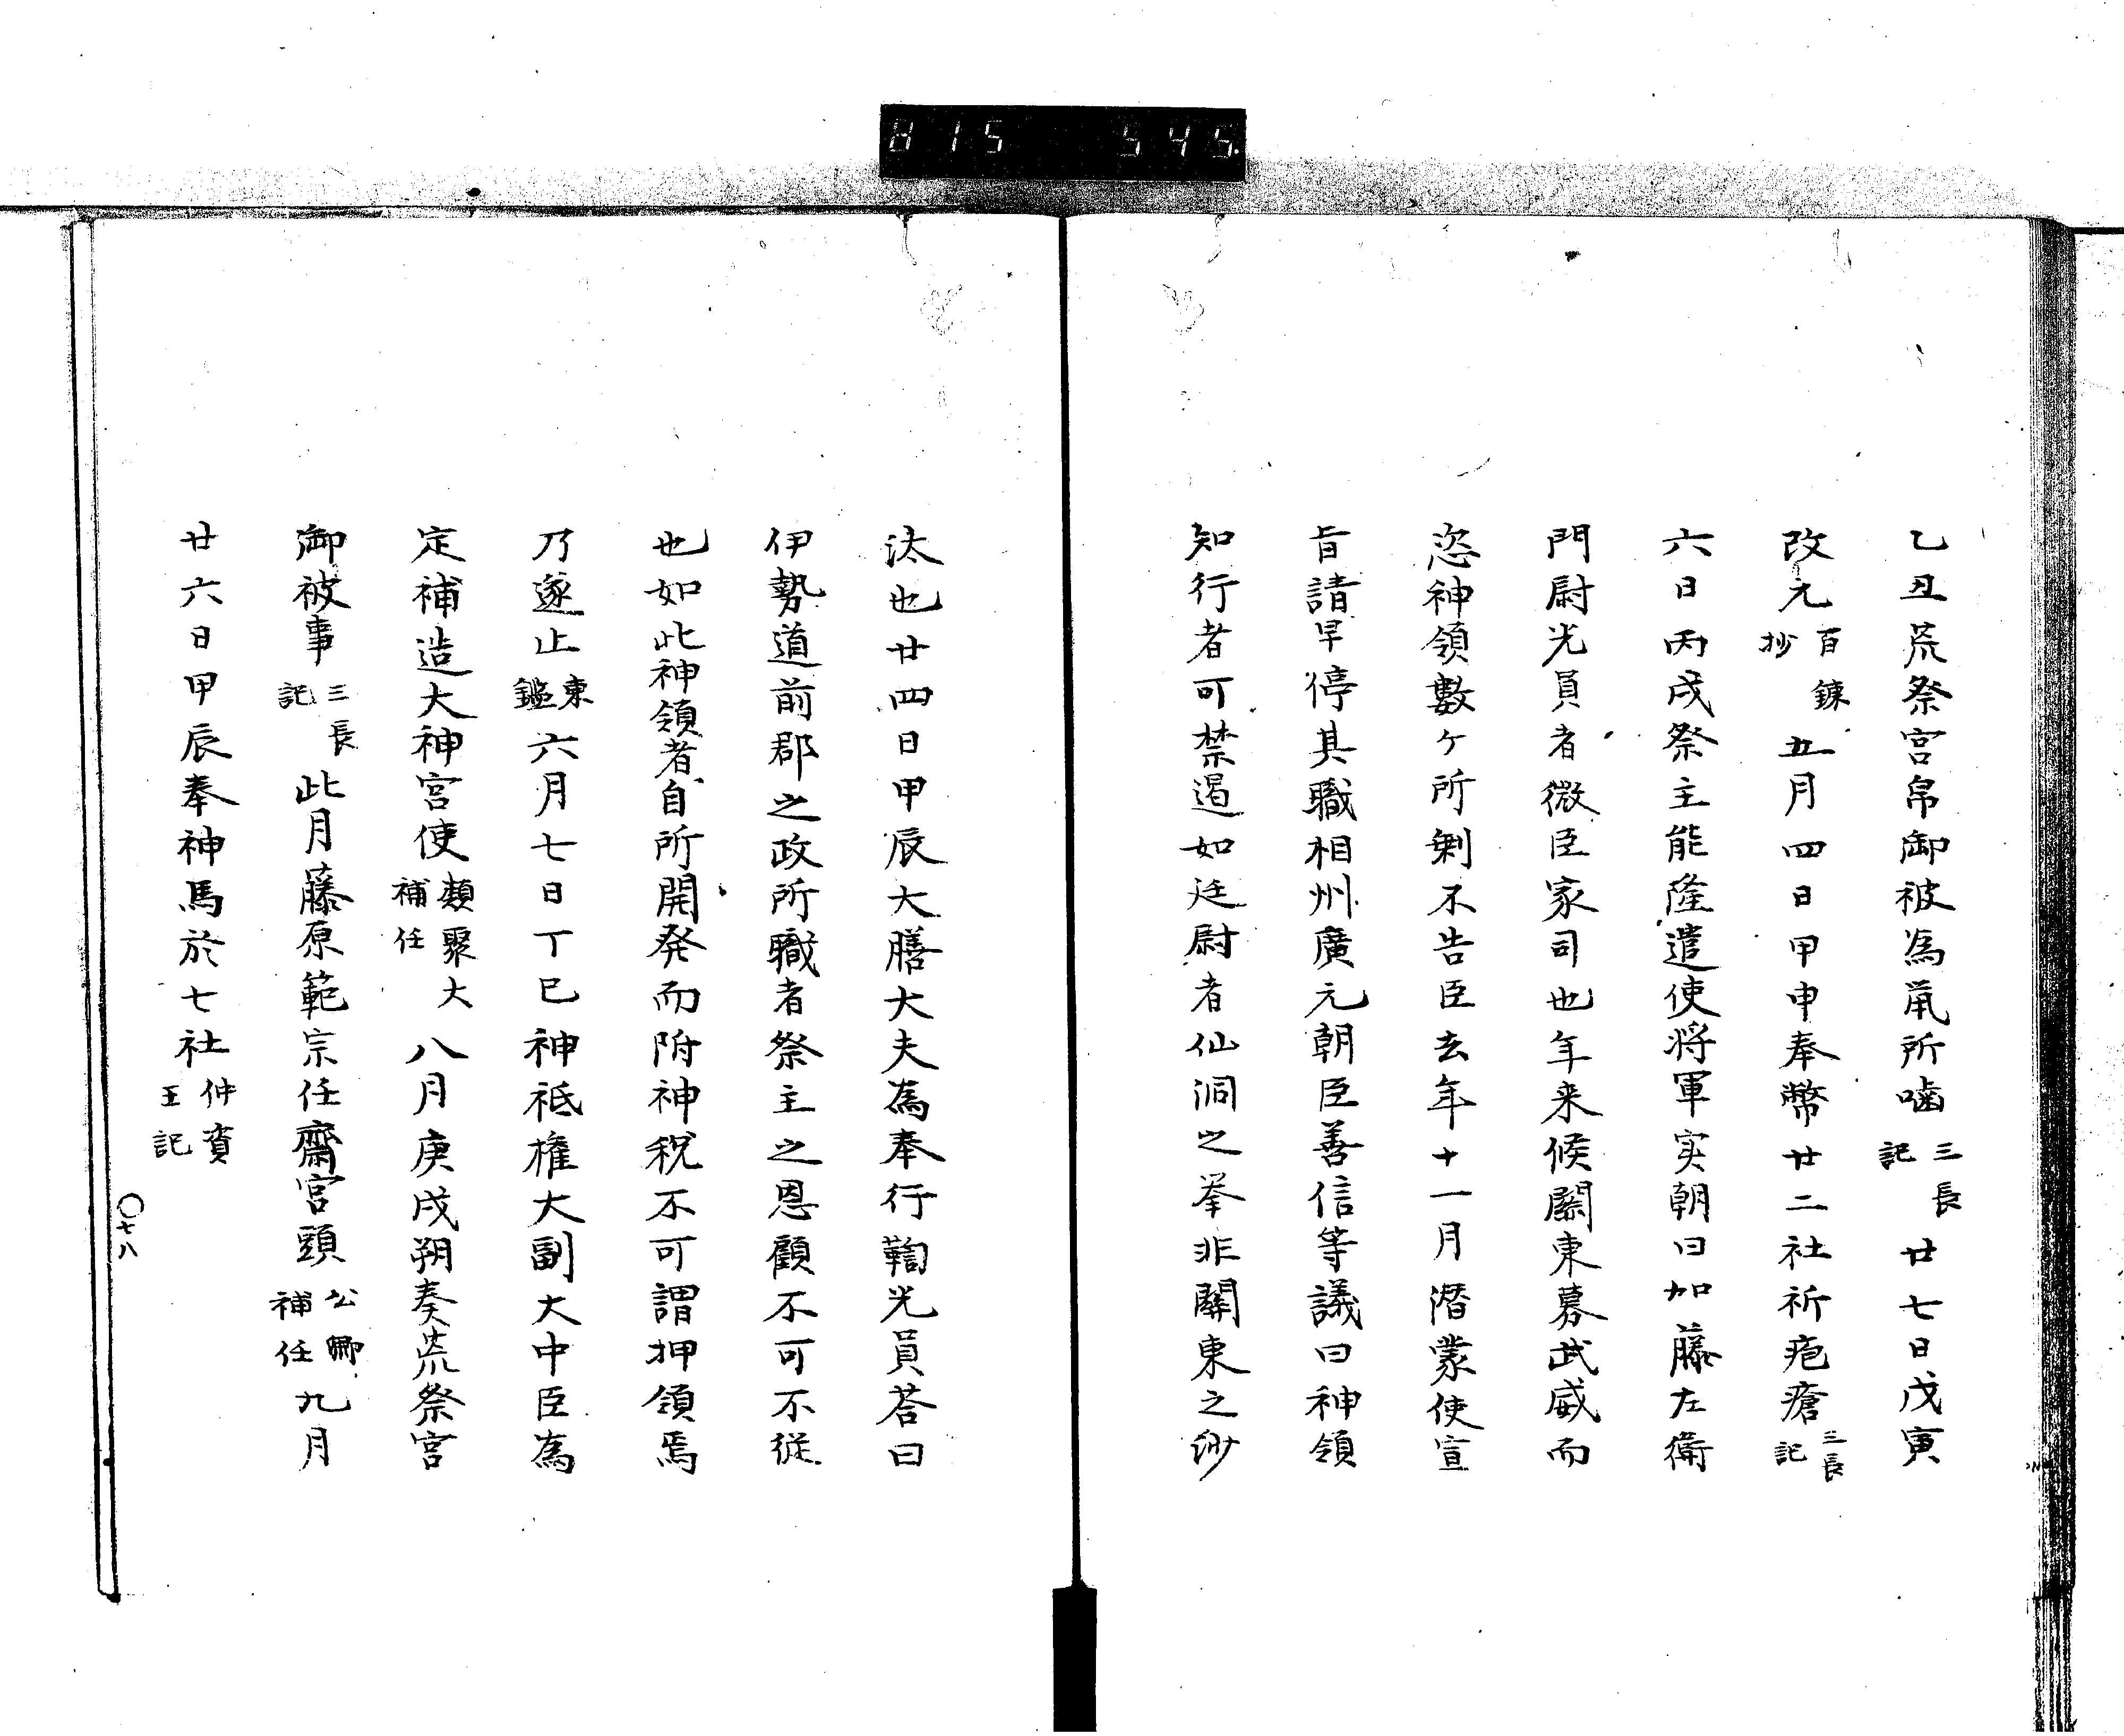 815 545
乙丑荒祭宮帛御被為鼠所噛三長記廿七日戊寅
改元百錬抄五月四日甲申奉幣廿二社祈疱瘡三長記
六日丙戌祭主能隆遣使将軍実朝曰加藤左衛
門尉光員者微臣家司也年来候関東募武威而
恣神領數ケ所剰不告臣去年十一月潜蒙使宣
旨請早停其職相州廣元朝臣善信等議曰神領
知行者可禁遏如廷尉者仙洞之挙非關東之沙
汰也廿四日甲辰大膳大夫為奉行鞫光員荅曰
伊勢道前郡之政所職者祭主之恩顧不可不従
也如此神領者自所開発而附神税不可謂押領焉
乃遂止東鑑六月七日丁巳神祗権大副大中臣為
定補造大神宮使類聚大補任八月庚戌朔奏荒祭宮
御被事三長記此月藤原範宗任齋宮頭公卿補任九月
廿六日甲辰奉神馬於七社仲資王記
〇七八